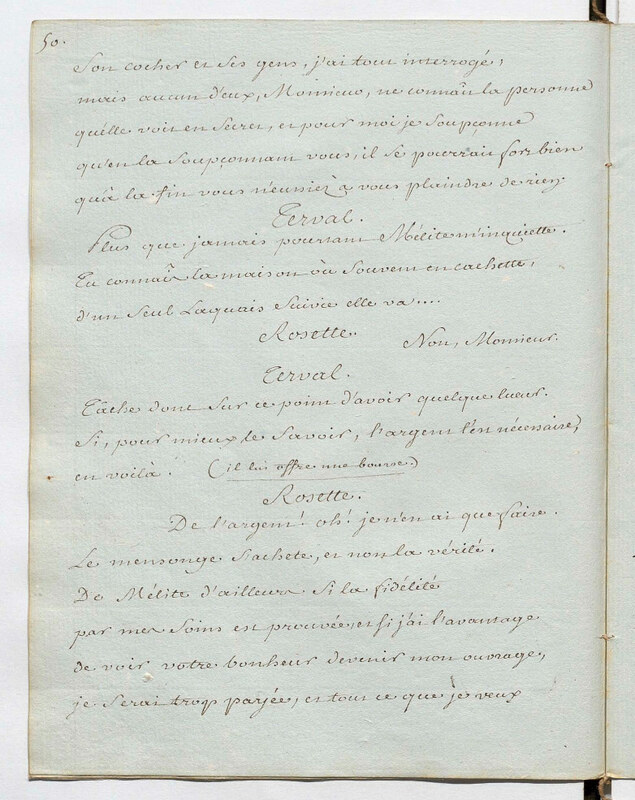 50.
Son cocher et ses gens, j'ai tout interrogé,
mais aucun d'eux, Monsieur, ne connâit la personne
qu'elle voit en secret, et pour moi je soupçonne
qu'en la soupçonnant vous, il se pourrait fort bien
qu'à la fin vous n'eussiez à vous plaindre de rien.
Terval.
Plus que jamais pourtant Mélite m'inquiette.
Tu connais la maison où souvent en cachette,
d'un seul Laquais suivie elle va....
Rosette.
Non, Monsieur.
Terval.
Tache dont sur ce point d'avoir quelque lueur.
Si, pour mieux le savoir, l'argent t'en nécessaire,
en voilà. (il lui offre une bourse.)
Rosette.
De l'argent! oh! je n'en ai que faire.
Le mensonge s'achete, et non la vérité.
De Mélite d'ailleurs si la fidélité
par mes soins est prouvée, et si j'ai l'avantage
de voir votre bonheur devenir mon ouvrage,
je serai trop payée, et tout ce que je veux